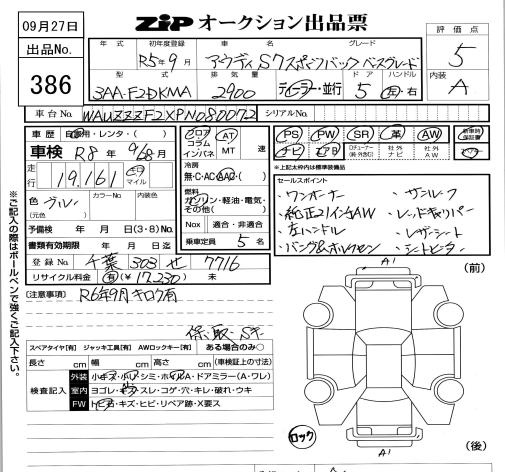 09月27日
ZIP オークション出品票
出品No.
386
評価点
5
内装
A
年式 初年度登録 車名 グレード
R5年9月 アウディS7スポーツバック ベースグレード
型式 排気量 ドア ハンドル
3AA-F2DKMA 2900 ディーラー・並行 5 左・右
車台No. WAUZZZF2XPN080072 シリアルNo.
車歴 自家用・レンタ・( )
車検 R8年9月
走行 19,161 キロ マイル
色 ブルー カラーNo. 内装色
(元色)
予備検 年 月 日(3・8)No.
書類有効期限 年 月 日迄
登録No. 千葉 303 せ 7716
リサイクル料金 有(¥17,230) 未
フロア コラム インパネ
AT MT 速
冷房
無・C・AC・AAC・( )
燃料
ガソリン・軽油・電気・その他( )
Nox 適合・非適合
乗車定員 5 名
PS PW SR 革 AW 新車時保証書
ナビ TV 社外ナビ 社外AW
※上記太枠は標準装備品
セールスポイント
・ワンオーナー ・サンルーフ
・純正21インチAW ・レッドキャリパー
・左ハンドル ・レザーシート
・バング&オルフセン ・シートヒーター
(注意事項) R6年9月キロク有
保・取・Sキー
スペアタイヤ[有] ジャッキ工具[有] AWロックキー[有] ある場合のみ○
長さ cm 幅 cm 高さ cm (車検証上の寸法)
検査記入
外装 小キズ・小ハリ・シミ・ホイールA・ドアミラー(A・ワレ)
室内 ヨゴレ・キズ・スレ・コゲ・穴・キレ・破れ・ウキ
FW トビA・キズ・ヒビ・リペア跡・X要ス
※ご記入の際はボールペンで強くご記入下さい。
A1
(前)
ロック
A1
(後)